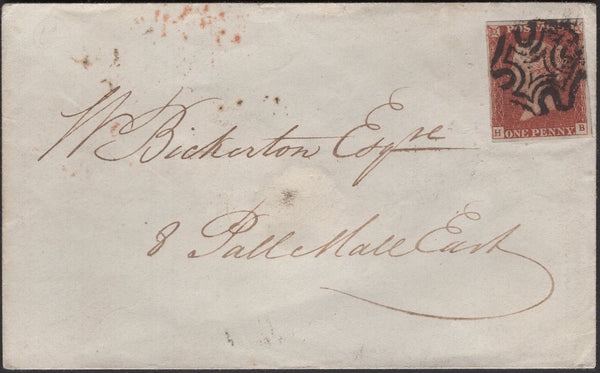 POSTAGE
ONE PENNY
H B
W Bickerton Esqre
8 Pall Mall East